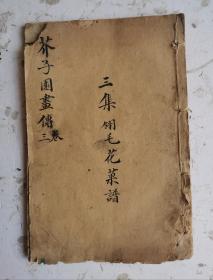 芥子園畫傳
三卷
三集翎毛花菓譜